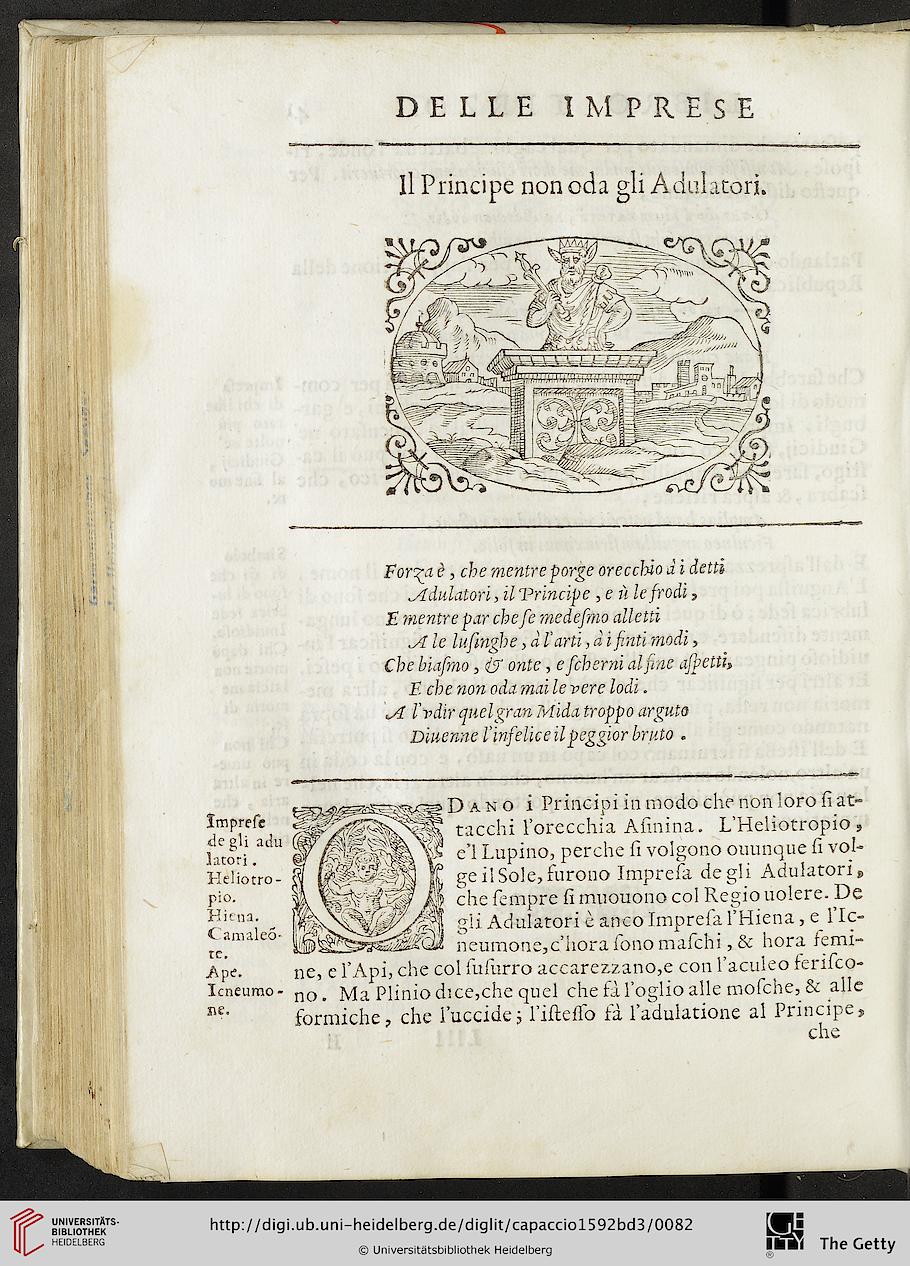 DELLE IMPRESE
Il Principe non oda gli Adulatori.
Forza è, che mentre porge orecchio à i detti
Adulatori, il Principe, e ù le frodi,
E mentre par che ſe medeſmo alletti
A le luſinghe, à l'arti, à i finti modi,
Che biaſmo, & onte, e ſcherni al fine aſpetti,
E che non oda mai le vere lodi.
A l'vdir quel gran Mida troppo arguto
Diuenne l'infelice il peggior bruto.
Impreſe
de gli adu
latori.
Heliotro-
pio.
Hiena.
Camaleõ-
te.
Ape.
Icneumo-
ne.
ODANO i Principi in modo che non loro ſi at-
tacchi l'orecchia Aſinina. L'Heliotropio,
e'l Lupino, perche ſi volgono ouunque ſi vol-
ge il Sole, furono Impreſa de gli Adulatori,
che ſempre ſi muouono col Regio uolere. De
gli Adulatori è anco Impreſa l'Hiena, e l'Ic-
neumone, c'hora ſono maſchi, & hora femi-
ne, e l'Api, che col ſuſurro accarezzano, e con l'aculeo feriſco-
no. Ma Plinio dice, che quel che fà l'oglio alle moſche, & alle
formiche, che l'uccide; l'iſteſſo fà l'adulatione al Principe,
che
UNIVERSITÄTS-
BIBLIOTHEK
HEIDELBERG
http://digi.ub.uni-heidelberg.de/diglit/capaccio1592bd3/0082
© Universitätsbibliothek Heidelberg
GETTY
The Getty